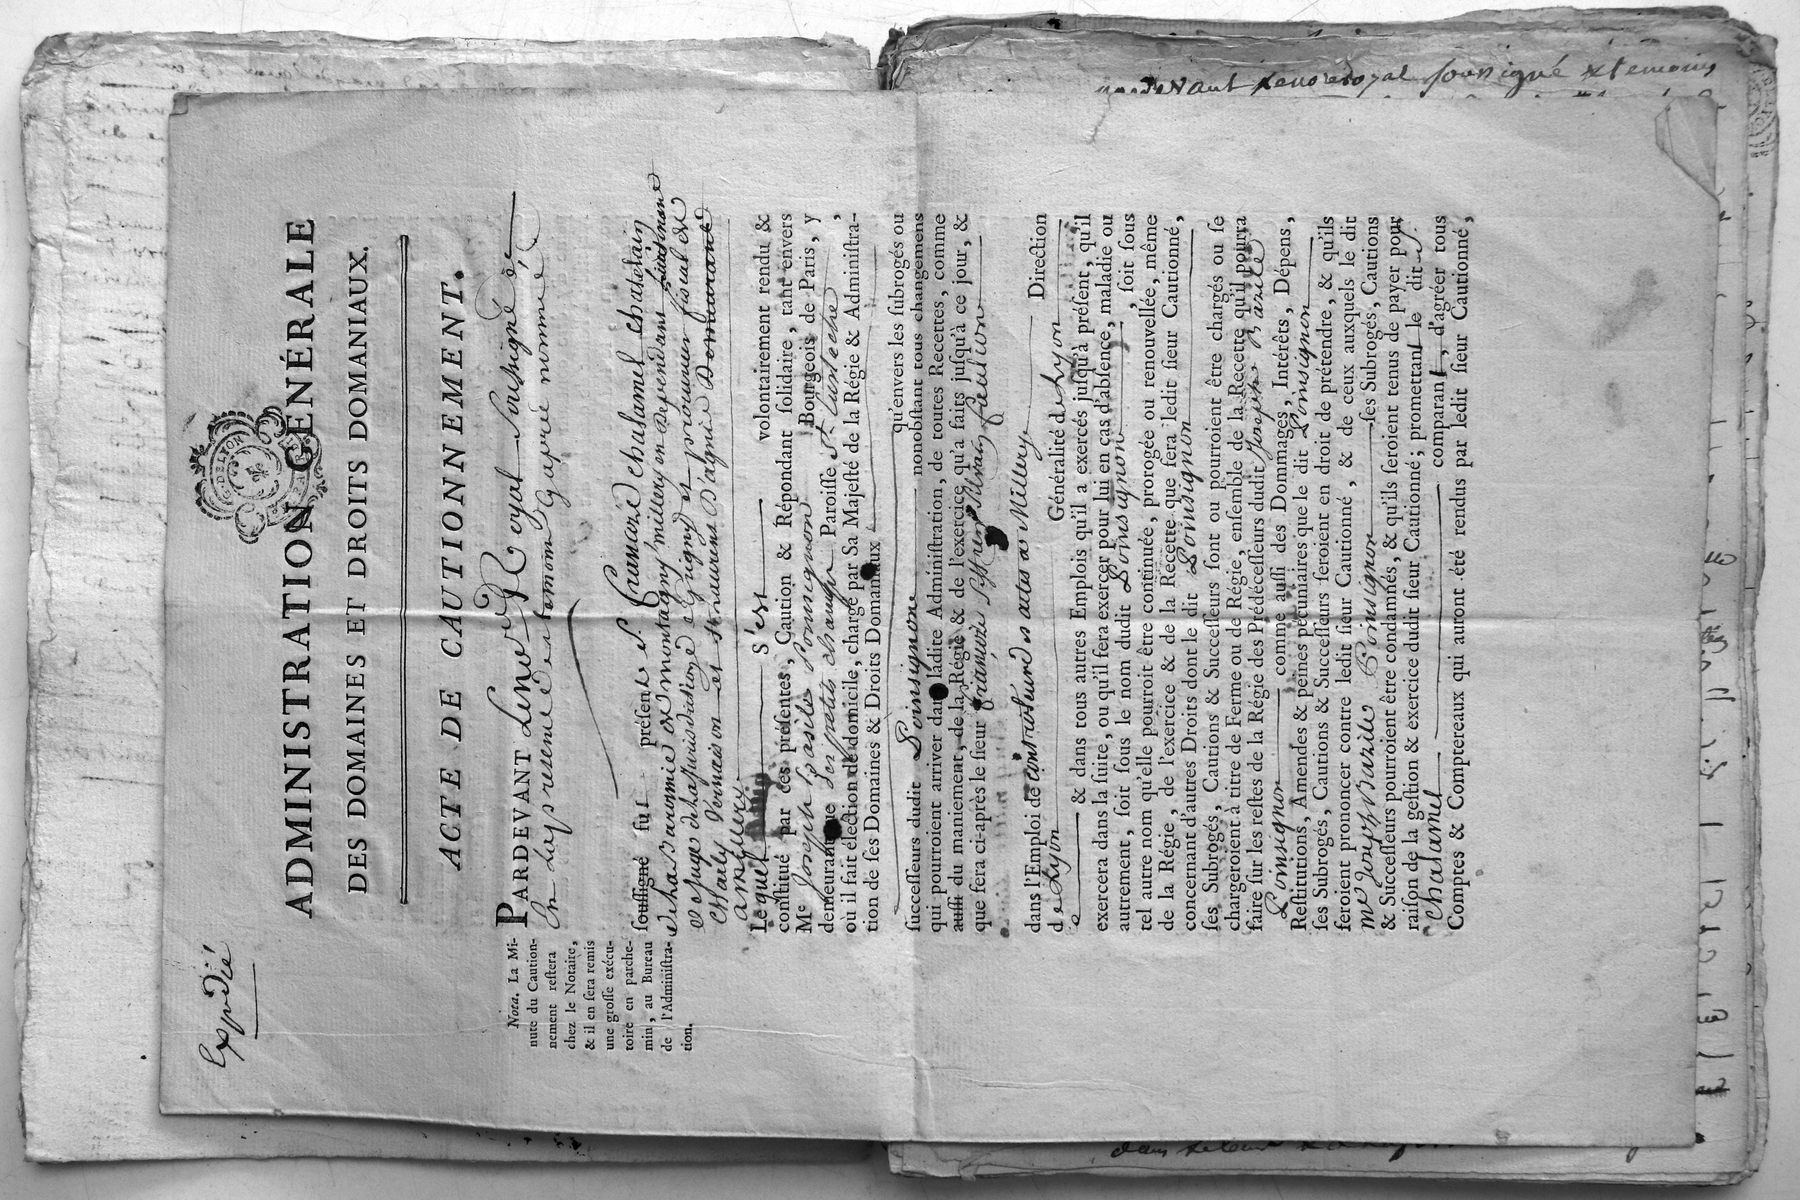 Expedié
G. DE LYON
ADMINISTRATION GÉNÉRALE
DES DOMAINES ET DROITS DOMANIAUX.
ACTE DE CAUTIONNEMENT.
Nota. La Mi-
nute du Caution-
nement reſtera
chez le Notaire,
& il en ſera remis
une groſſe exécu-
toire en parche-
min, au Bureau
de l'Adminiſtra-
tion.
PARDEVANT Le no.re Royal Soussigné
En la presence des temoins Cy aprés nommés
ſouſſigné fut préſent Sr. Francois Chalamel chatelain
de la Baronnie de montagny millery en dependant
et Juge de la jurisdiction de Grigny et procureur fiscal de
Charly Vernaison et demeurant
a millery
Lequel S'est volontairement rendu &
conſtitué par ces préſentes, Caution & Répondant ſolidaire, tant envers
Me Joseph Basile Poinsignon Bourgeois de Paris, y
demeurant rue des petits champs Paroiſſe St. Eustache
où il fait élection de domicile, chargé par Sa Majeſté de la Régie & Adminiſtra-
tion de ſes Domaines & Droits Domaniaux,
qu'envers les ſubrogés ou
ſucceſſeurs dudit Poinsignon nonobſtant tous changemens
qui pourroient arriver dans ladite Adminiſtration, de toutes Recettes, comme
auſſi du maniement, de la Régie & de l'exercice qu'a faits juſqu'à ce jour, &
que fera ci-après le ſieur francois
dans l'Emploi de Controleur des actes a Millery Direction
de Lyon Généralité de Lyon
& dans tous autres Emplois qu'il a exercés juſqu'à préſent, qu'il
exercera dans la ſuite, ou qu'il fera exercer pour lui en cas d'abſence, maladie ou
autrement, ſoit ſous le nom dudit Poinsignon, ſoit ſous
tel autre nom qu'elle pourroit être continuée, prorogée ou renouvellée, même
de la Régie, de l'exercice & de la Recette que fera ledit ſieur Cautionné,
concernant d'autres Droits dont le dit Poinsignon
ſes Subrogés, Cautions & Succeſſeurs ſont ou pourroient être chargés ou ſe
chargeroient à titre de Ferme ou de Régie, enſemble de la Recette qu'il pourra
faire ſur les reſtes de la Régie des Prédéceſſeurs dudit Joseph Bazile
Poinsignon comme auſſi des Dommages, Intérêts, Dépens,
Reſtitutions, Amendes & peines pécuniaires que le dit Poinsignon
ſes Subrogés, Cautions & Succeſſeurs ſeroient en droit de prétendre, & qu'ils
feroient prononcer contre ledit ſieur Cautionné, & de ceux auxquels le dit
me Joseph Bazile Poinsignon ſes Subrogés, Cautions
& Succeſſeurs pourroient être condamnés, & qu'ils ſeroient tenus de payer pour
raiſon de la geſtion & exercice dudit ſieur Cautionné; promettant le dit Sr.
Chalamel comparant, d'agréer tous
Comptes & Comptereaux qui auront été rendus par ledit ſieur Cautionné,